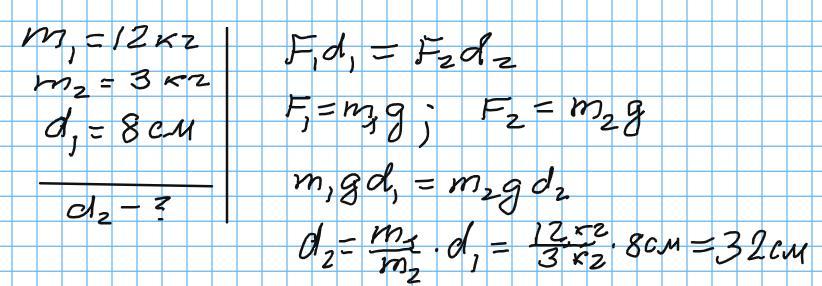 m₁ = 12 кг
m₂ = 3 кг
d₁ = 8 см
d₂ – ?
F₁d₁ = F₂d₂
F₁ = m₁g ; F₂ = m₂g
m₁gd₁ = m₂gd₂
d₂ = m₁/m₂ · d₁ = 12 кг/3 кг · 8 см = 32 см